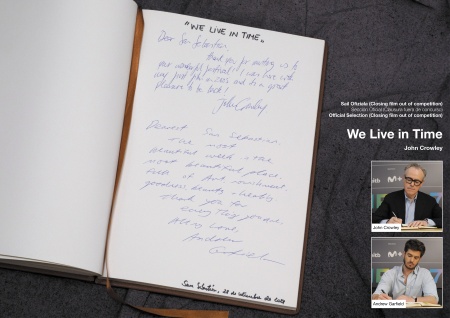 "WE LIVE IN TIME"
Dear San Sebastian,
thank you for inviting us to
your wonderful festival! I can live with
any just
and it's a great
pleasure to be back!
John Crowley
Dearest San Sebastian,
The most
beautiful week in the
most beautiful place.
Full of Art nourishment,
goodness beauty
Thank you for
everything you are,
All my love,
Andrew
Garfield
San Sebastián, 28 de setiembre de 2024
Sail Ofiziala (Closing film out of competition)
Sección Oficial (Clausura fuera de concurso)
Official Selection (Closing film out of competition)
We Live in Time
John Crowley
M+
John Crowley
M+
Andrew Garfield